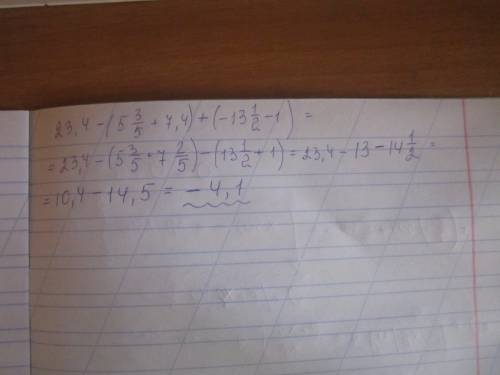 23,4 - (5 3/5 + 7,4) + (-13 1/2 - 1) =
= 23,4 - (5 3/5 + 7 2/5) - (13 1/2 + 1) = 23,4 - 13 - 14 1/2 =
= 10,4 - 14,5 = - 4,1